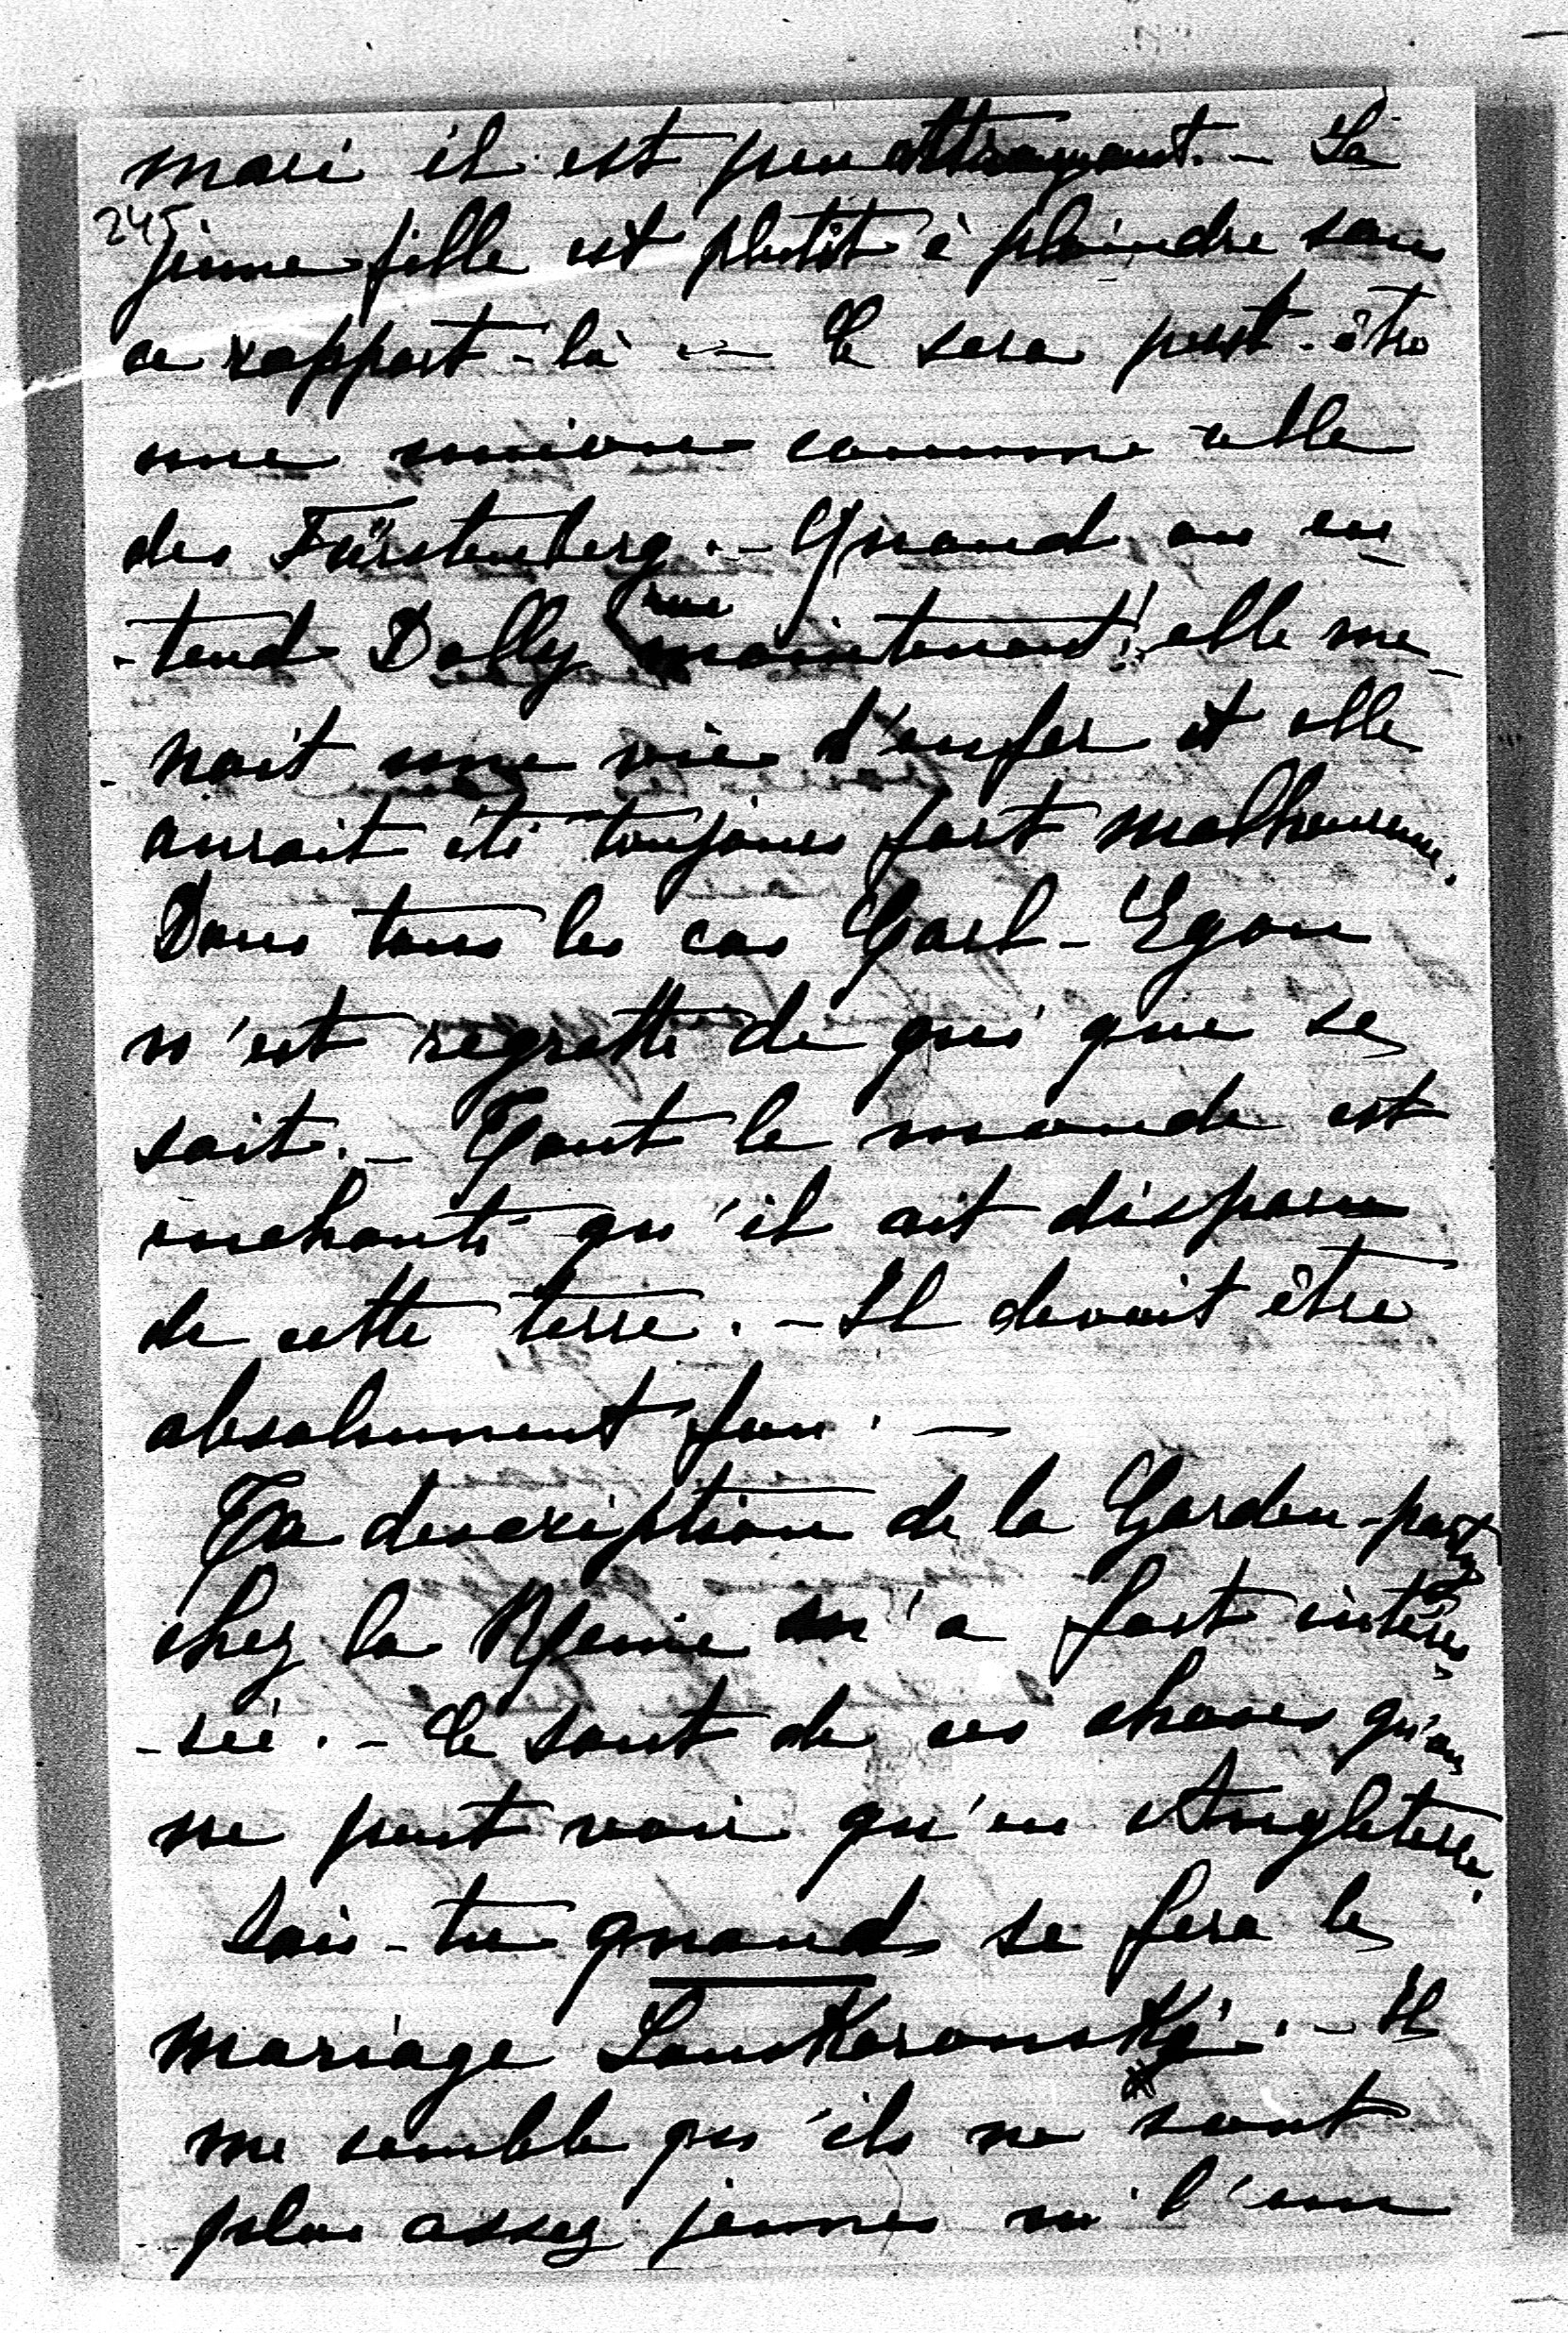 mari il est peu attrayant. – La
245
jeune fille est plutôt à plaindre sous
ce rapport-là – Ce sera peut-être
une union comme celle
des Fürstenberg. – Quand on en-
-tend Dolly maintenant! elle me-
-nait une vie d'enfer et elle
aurait été toujours fort malheureuse.
Dans tous les cas Carl-Egon
n'est regretté de qui que ce
soit. – Tout le monde est
enchanté qu'il ait disparu
de cette terre. – Il devait être
absolument fou. –
Ta description de la Garden-party
chez la Reine m'a fort intéres-
-sée. – Ce sont de ces choses qu'on
ne peut voir qu'en Angleterre.
Sais-tu quand se fera le
mariage Lanckoronski. – Il
me semble qu'ils ne sont
plus assez jeunes ni l'un